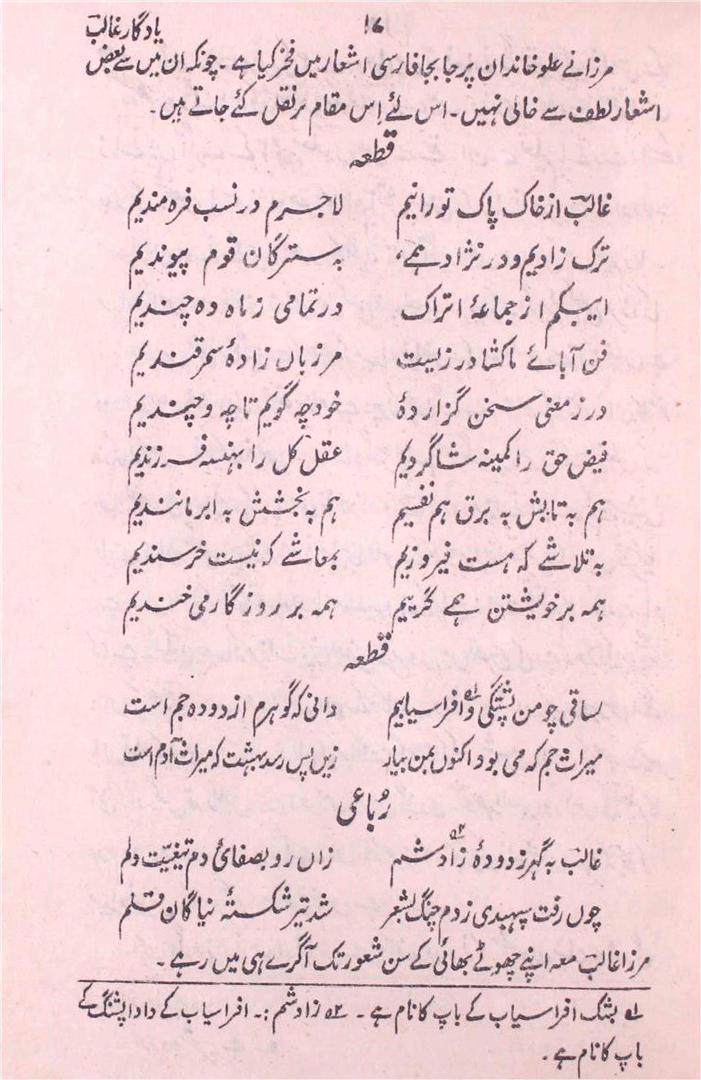 ۱۷ یادگار غالبؔ
مرزا نے علو خاندان پر جا بجا فارسی اشعار میں فخر کیا ہے۔ چونکہ ان میں سے بعض
اشعار لطف سے خالی نہیں۔ اس لئے اِس مقام پر نقل کئے جاتے ہیں۔
قطعہ
غالبؔ از خاک پاک تورانیم لاجرم در نسب فرہ مندیم
ترک زادیم و در نژاد ہمے، بہ سترگان قوم پیوندیم
ایبکم از جماعۂ اتراک در تمامی ز ماہ دہ چندیم
فن آبائے ما کشاورزیست مرزباں زادۂ سمرقندیم
ور ز معنی سخن گزاردۂ خود چہ گویم تا چہ و چندیم
فیض حق را کمینہ شاگردیم عقل کل را بہینہ فرزندیم
ہم بہ تابش بہ برق ہم نفسیم ہم بہ بخشش بہ ابر مانندیم
بہ تلاشے کہ ہست فیروزیم بمعاشے کہ نیست خرسندیم
ہمہ بر خویشتن ہمے گرییم ہمہ بر روزگار می خندیم
قطعہ
ساقی چو من پشنگی ؎۱ و افراسیابیم دانی کہ گوہرم از دودہ جم است
میراث جم کہ می بود اکنوں بمن بیار زیں پس رسد بہشت کہ میراث آدم است
رُباعی
غالبؔ بہ گہر ز دودۂ زادشمم ؎۲ زاں رو بصفائ دم تیغیت دلم
چوں رفت سپہبدی ز دم چنگ بشعر شد تیر شکستۂ نیاگان قلمم
مرزا غالبؔ معہ اپنے چھوٹے بھائی کے سن شعور تک آگرے ہی میں رہے۔
؎۱ پشنگ افراسیاب کے باپ کا نام ہے۔ ؎۲ زادشم :۔ افراسیاب کے دادا پشنگ کے
باپ کا نام ہے۔